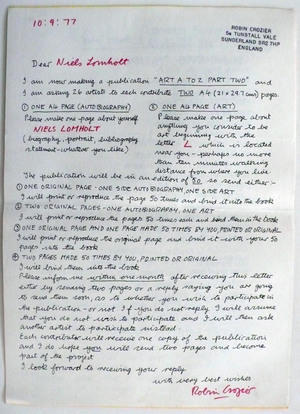 10:9:77
ROBIN CROZIER
5a TUNSTALL VALE
SUNDERLAND SR2 7HP
ENGLAND
Dear Niels Lomholt
I am now making a publication "ART A TO Z PART TWO" and
I am asking 26 artists to each contribute TWO A4 (21 x 29.7 cms) pages.
① ONE A4 PAGE (AUTOBIOGRAPHY)
Please make one page about yourself
NIELS LOMHOLT
(biography, portrait, bibliography
statement - whatever you like)
② ONE A4 PAGE (ART)
Please make one page about
anything you consider to be
art beginning with the
letter L which is located
near you - perhaps no more
than ten minutes walking
distance from where you live
The publication will be in an edition of 50 so send either:-
① ONE ORIGINAL PAGE - ONE SIDE AUTOBIOGRAPHY, ONE SIDE ART
I will print or reproduce the page 50 times and bind it into the book
② TWO ORIGINAL PAGES - ONE AUTOBIOGRAPHY, ONE ART
I will print or reproduce the pages 50 times each and bind them in the book
③ ONE ORIGINAL PAGE AND ONE PAGE MADE 50 TIMES BY YOU, PRINTED OR ORIGINAL
I will print or reproduce the original page and bind it with your 50
pages into the book
④ TWO PAGES MADE 50 TIMES BY YOU, PRINTED OR ORIGINAL
I will bind them into the book
Please inform me within one month after receiving this letter
either by sending two pages or a reply saying you are going
to send them soon, as to whether you wish to participate in
the publication - or not. If you do not reply I will assume
that you do not wish to participate and I will then ask
another artist to participate instead.
Each contributor will receive one copy of the publication
and I do hope you will send two pages and become
part of the project
I look forward to receiving your reply
with very best wishes
Robin Crozier